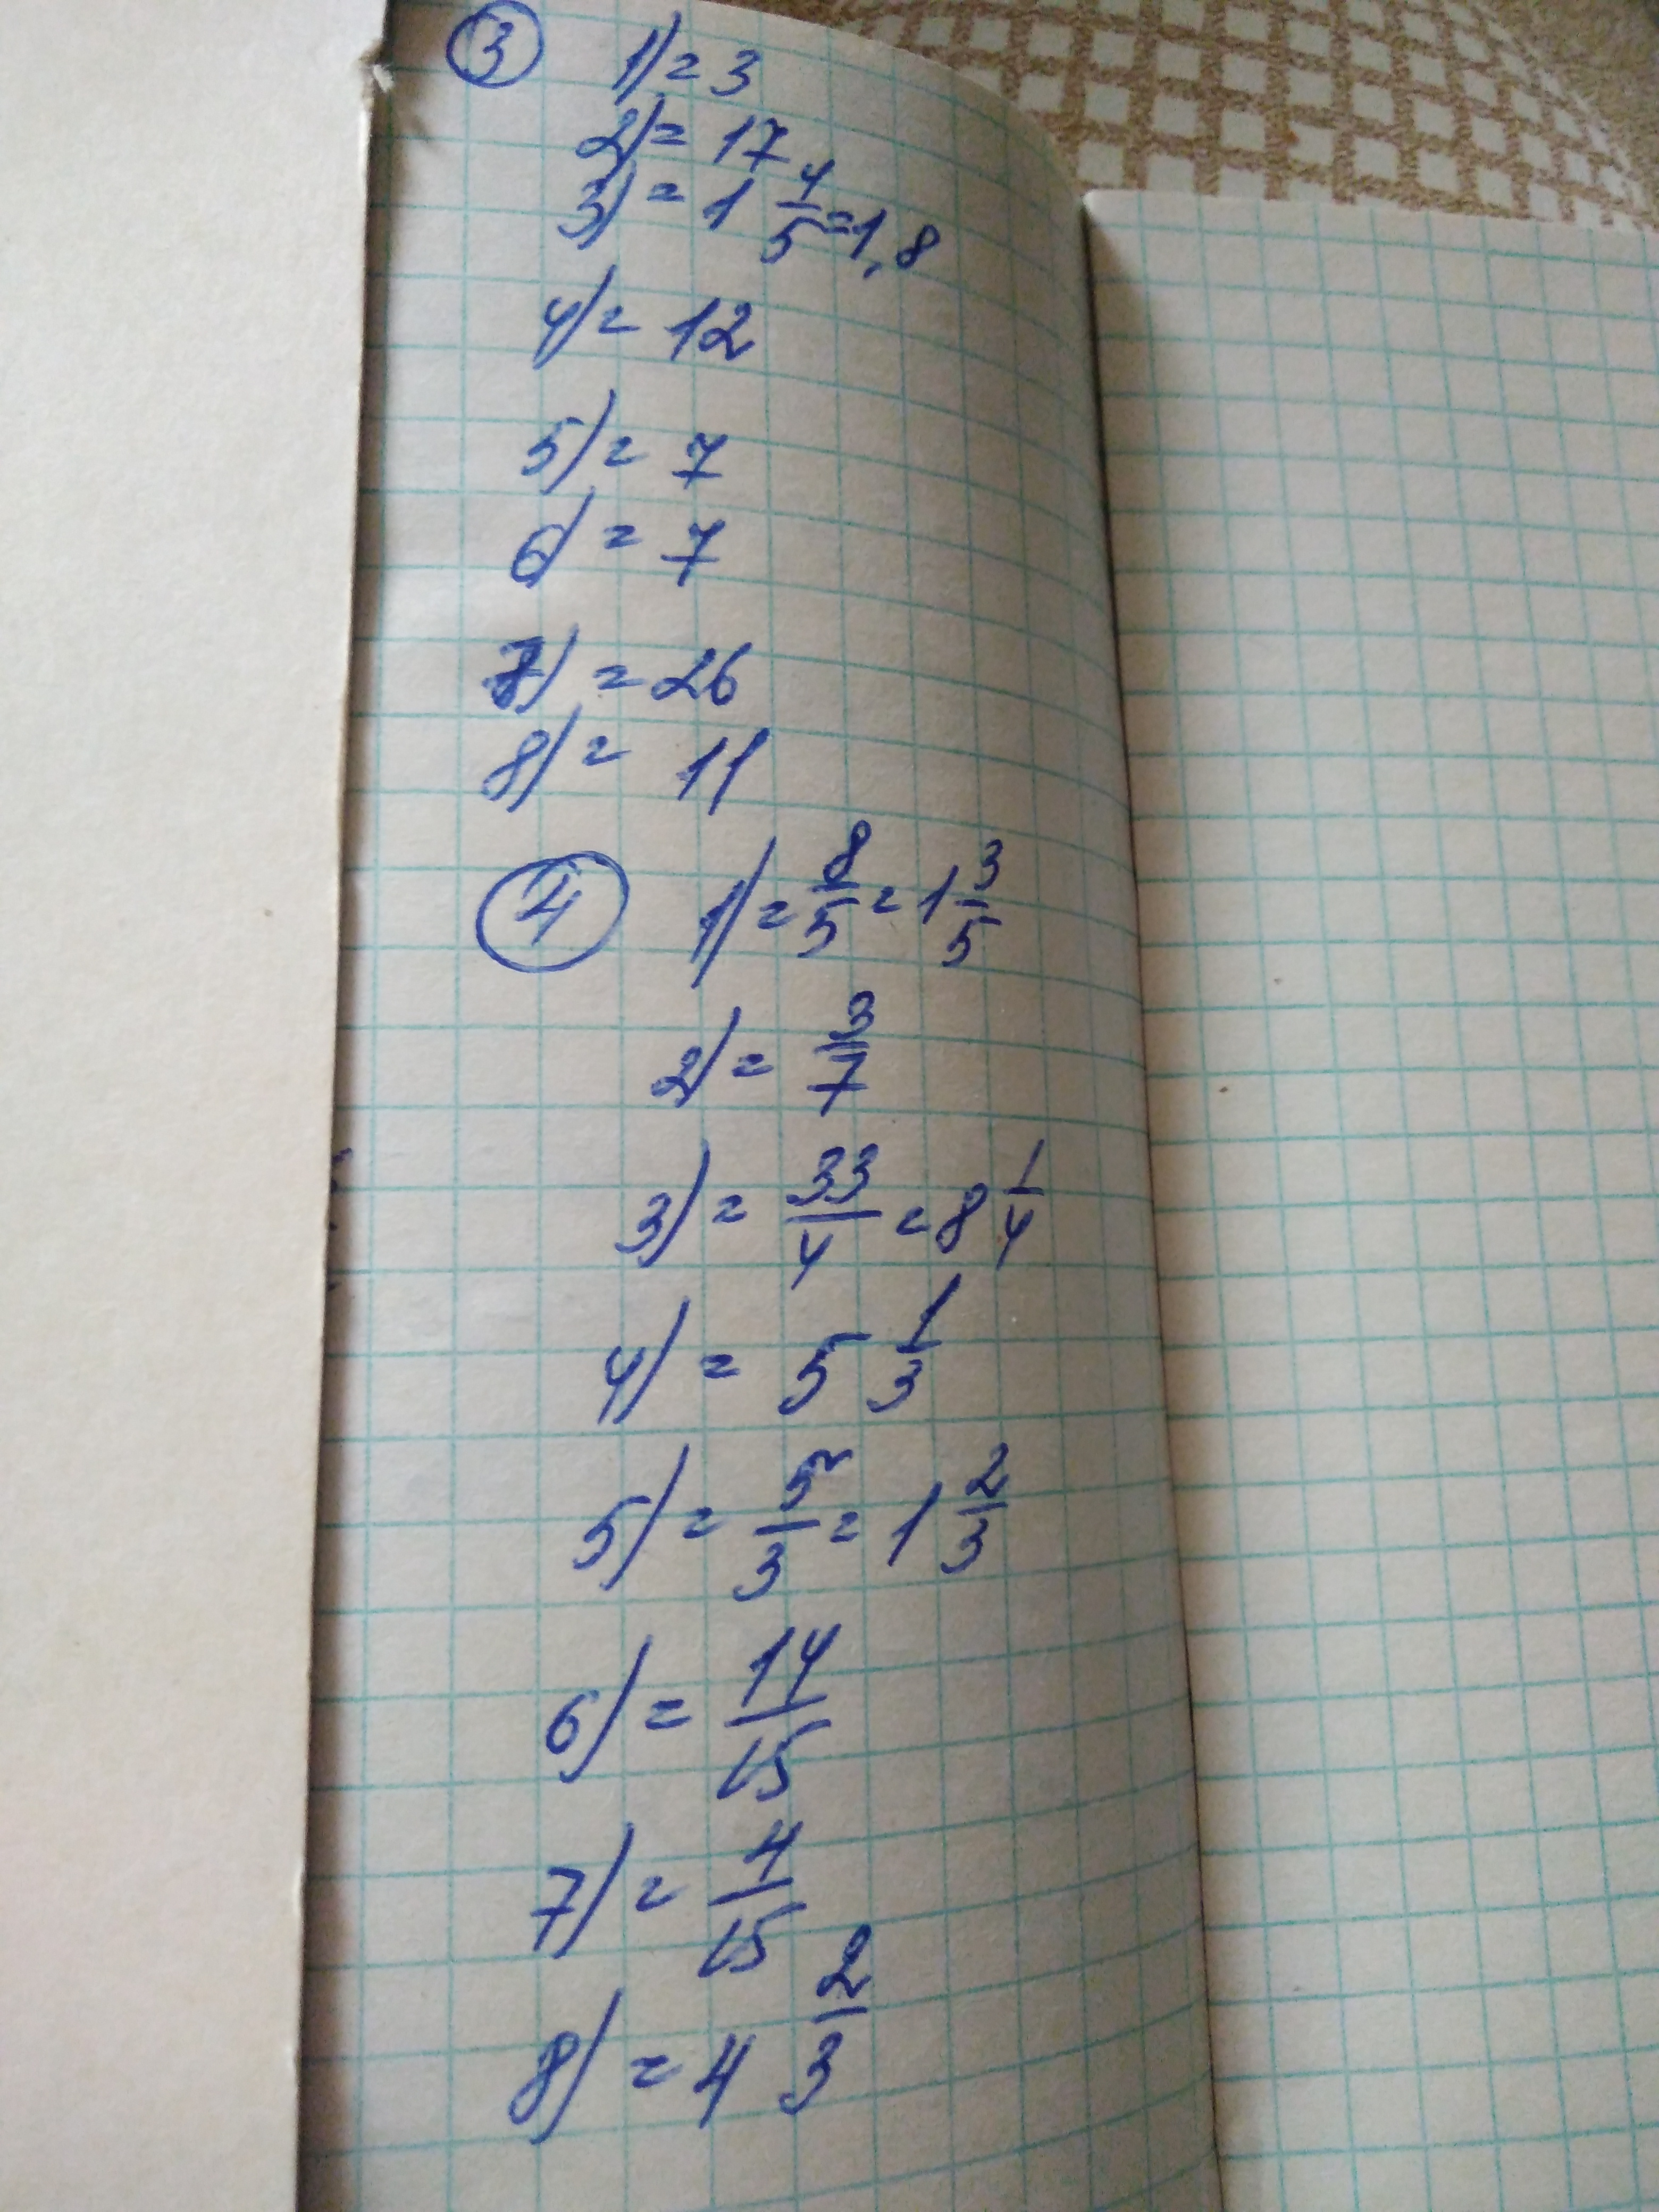 3 1) = 3
2) = 17
3) = 1 4/5 = 1,8
4) = 12
5) = 7
6) = 7
7) = 26
8) = 11
4 1) = 8/5 = 1 3/5
2) = 3/7
3) = 33/4 = 8 1/4
4) = 5 1/3
5) = 5/3 = 1 2/3
6) = 14/15
7) = 4/15
8) = 4 2/3